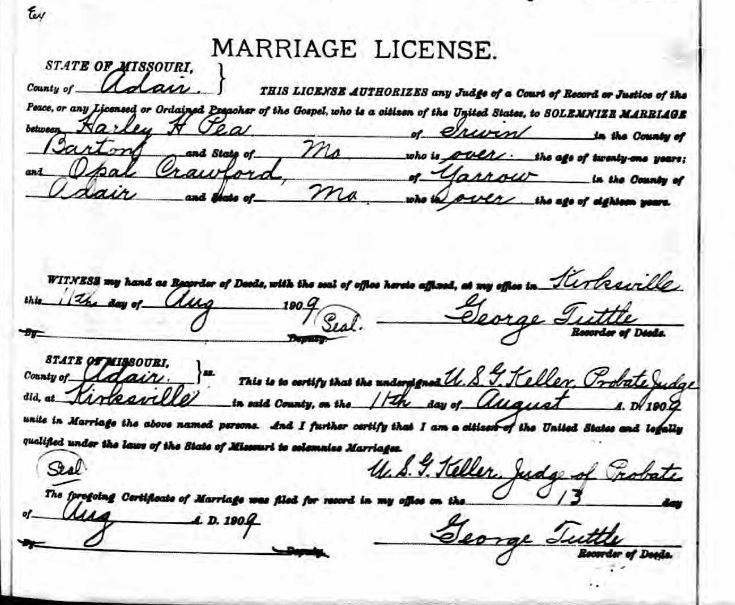 MARRIAGE LICENSE.
STATE OF MISSOURI,
County of Adair. } THIS LICENSE AUTHORIZES any Judge of a Court of Record or Justice of the
Peace, or any Licensed or Ordained Preacher of the Gospel, who is a citizen of the United States, to SOLEMNIZE MARRIAGE
between Harley H Pea of Irwin in the County of
Barton and State of Mo who is over the age of twenty-one years;
and Opal Crawford, of Yarrow in the County of
Adair and State of Mo. who is over the age of eighteen years.
WITNESS my hand as Recorder of Deeds, with the seal of office hereto affixed, at my office in Kirksville
this 11th day of Aug 1909
Seal. George Tuttle
By Deputy. Recorder of Deeds.
STATE OF MISSOURI,
County of Adair. } ss. This is to certify that the undersigned U.S.G. Keller, Probate Judge
did, at Kirksville in said County, on the 11th day of August A. D. 1909
unite in Marriage the above named persons. And I further certify that I am a citizen of the United States and legally
qualified under the laws of the State of Missouri to solemnize Marriages.
Seal U.S.G. Keller, Judge of Probate
The foregoing Certificate of Marriage was filed for record in my office on the 13 day
of Aug A. D. 1909
George Tuttle
By Deputy. Recorder of Deeds.